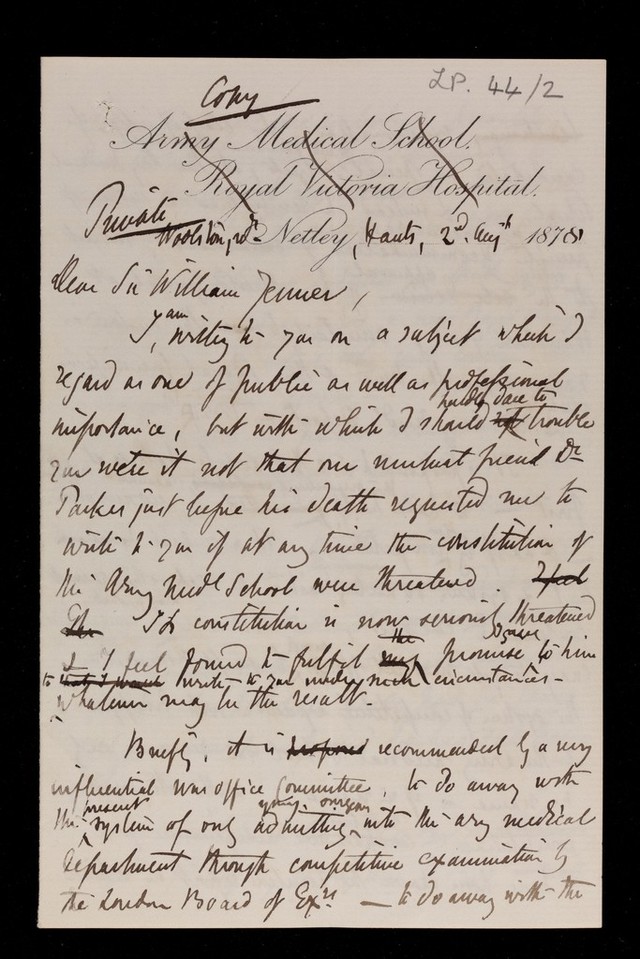 LP. 44/2
Copy
Army Medical School.
Royal Victoria Hospital.
Private
Woolston, Netley, Hants, 2d. Augt 1878
Dear Sir William Jenner,
I am writing to you on a subject which I
regard as one of public as well as professional
hardly dare to
importance, but with which I should not trouble
you were it not that our mutual friend Dr
Parkes just before his death requested me to
write to you if at any time the constitution of
the Army Medl School were threatened. I feel
The Its constitution is now seriously threatened
& I feel bound to fulfil my the promise I gave to him
to write to you under such circumstances -
whatever may be the result -
Briefly, it is proposed recommended by a very
influential War Office Committee, to do away with
the present system of only admitting young surgeons into the army medical
department through competitive examination by
the London Board of Exrs — to do away with the